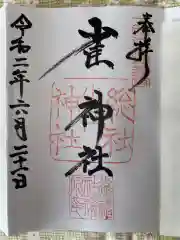 奉拝
総社
雀神社
神社
令和二年六月二十一日